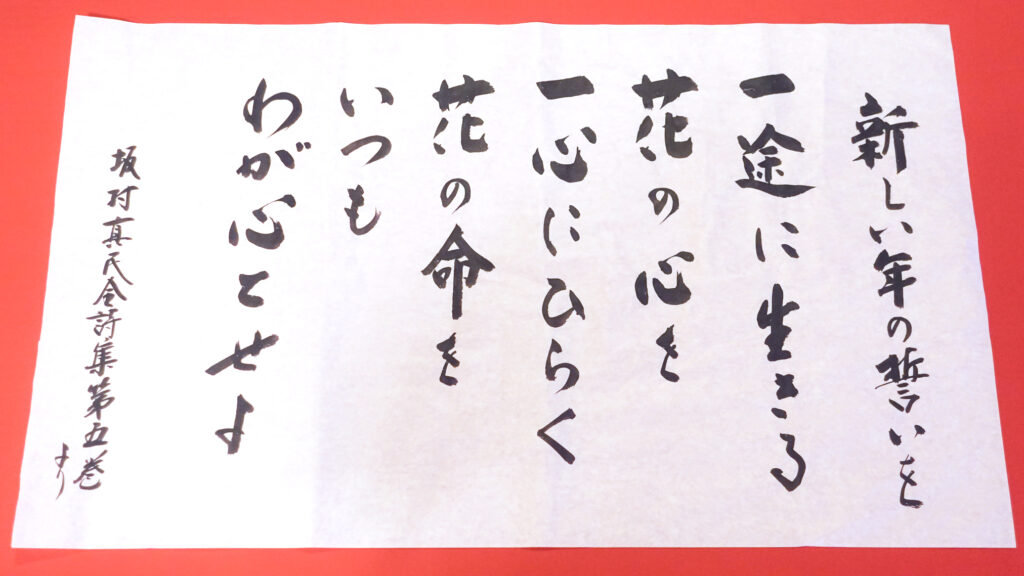 新しい年の誓いを
一途に生きる
花の心を
一心にひらく
花の命を
いつも
わが心とせよ
坂村真民全詩集第五巻
より